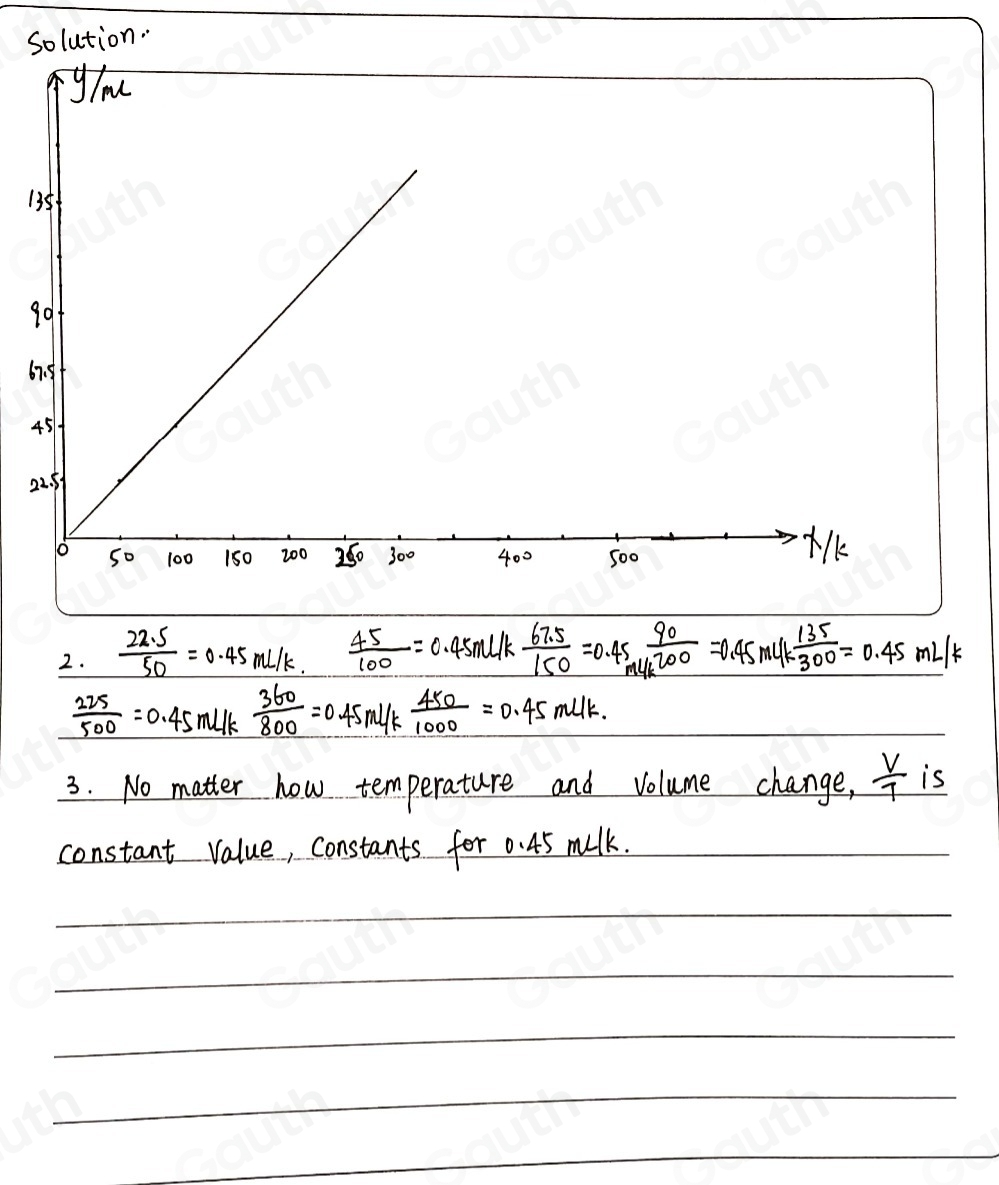 Solution.
y/mL
135
90
67.5
45
22.5
0 50 100 150 200 250 300 400 500 t/k
2. 22.5/50 = 0.45 mL/k. 45/100 = 0.45mL/k 67.5/150 = 0.45 mL/k 90/200 = 0.45 mL/k 135/300 = 0.45 mL/k
225/500 = 0.45 mL/k 360/800 = 0.45 mL/k 450/1000 = 0.45 mL/k.
3. No matter how temperature and Volume change, V/T is
constant Value, Constants for 0.45 mL/k.
Gauth